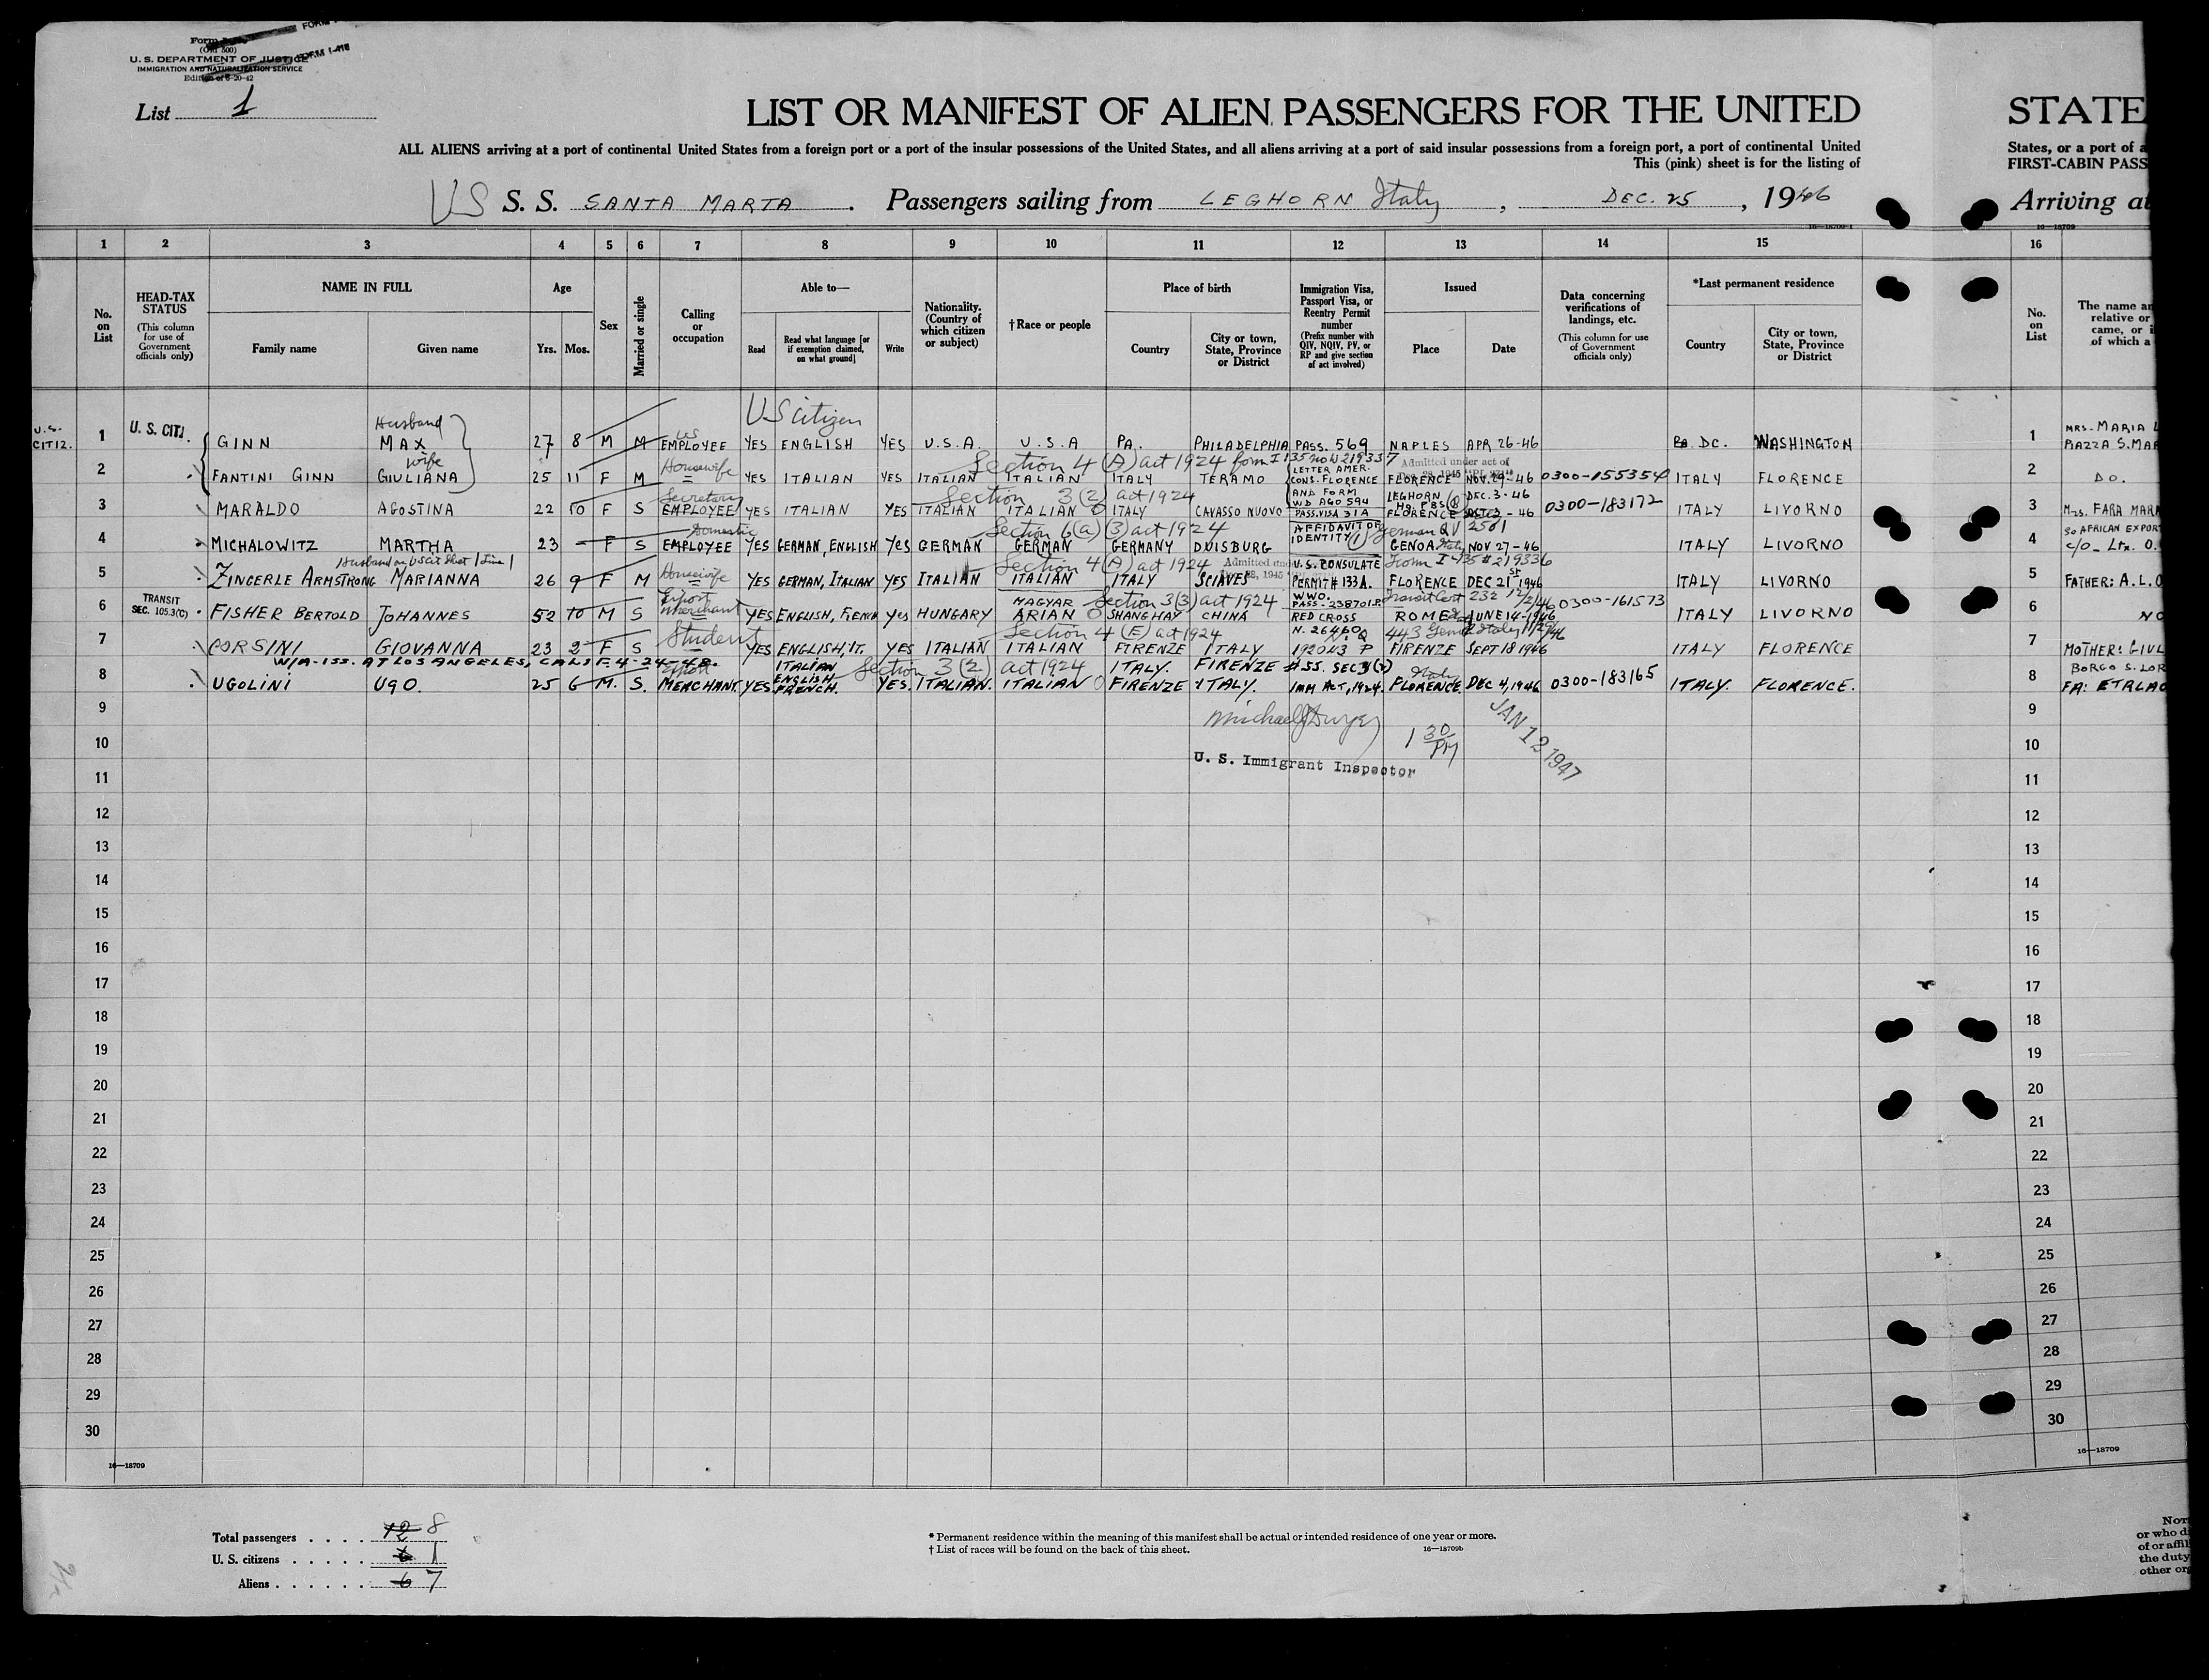 FORM I-418
Form
(Old 500)
U. S. DEPARTMENT OF JUSTICE
IMMIGRATION AND NATURALIZATION SERVICE
Edition of 8-20-42
List 1
LIST OR MANIFEST OF ALIEN PASSENGERS FOR THE UNITED
STATE
ALL ALIENS arriving at a port of continental United States from a foreign port or a port of the insular possessions of the United States, and all aliens arriving at a port of said insular possessions from a foreign port, a port of continental United
States, or a port of a
This (pink) sheet is for the listing of
FIRST-CABIN PASS
US S. S. SANTA MARTA . Passengers sailing from LEGHORN Italy, DEC. 25, 1946
Arriving at
16—18709-1
16—18709
1 2 3 4 5 6 7 8 9 10 11 12 13 14 15 16
No. on List
HEAD-TAX STATUS (This column for use of Government officials only)
NAME IN FULL
Family name
Given name
Age
Yrs. Mos.
Sex
Married or single
Calling or occupation
Able to—
Read
Read what language [or if exemption claimed, on what ground]
Write
Nationality. (Country of which citizen or subject)
†Race or people
Place of birth
Country
City or town, State, Province or District
Immigration Visa, Passport Visa, or Reentry Permit number (Prefix number with QIV, NQIV, PV, or RP and give section of act involved)
Issued
Place
Date
Data concerning verifications of landings, etc. (This column for use of Government officials only)
*Last permanent residence
Country
City or town, State, Province or District
No. on List
The name an
relative or
came, or i
of which a
U.S. CITIZ.
Husband
US citizen
US
1 U. S. CITI. GINN MAX 27 8 M M EMPLOYEE YES ENGLISH YES U.S.A. U.S.A PA. PHILADELPHIA PASS. 569 NAPLES APR 26-46 DC. WASHINGTON 1 MRS. MARIA
PIAZZA S. MAR
wife
Housewife
Section 4 (A) act 1924 form I 135 no W 219337
Admitted under act of
Dec. 28, 1945
2 FANTINI GINN GIULIANA 25 11 F M YES ITALIAN YES ITALIAN ITALIAN ITALY TERAMO LETTER AMER. CONS. FLORENCE FLORENCE NOV. 29-46 0300-155354 ITALY FLORENCE 2 DO.
Secretary
Section 3 (2) act 1924
AND FORM WD AGO 594 LEGHORN DEC. 3-46
3 MARALDO AGOSTINA 22 10 F S EMPLOYEE YES ITALIAN YES ITALIAN ITALIAN ITALY CAVASSO NUOVO PASS. VISA 31A FLORENCE OCT 3-46 0300-183172 ITALY LIVORNO 3 Mrs. FARA MARA
Domestic
Section 6(a)(3) act 1924
German QV 2501
4 MICHALOWITZ MARTHA 23 — F S EMPLOYEE YES GERMAN, ENGLISH YES GERMAN GERMAN GERMANY DUISBURG AFFIDAVIT OF IDENTITY GENOA Italy NOV 27-46 ITALY LIVORNO 4 SO AFRICAN EXPORT
C/O_ Ltn. O.
Husband on US cit Sheet 1 Line 1
Housewife
Section 4 (A) act 1924
Form I 435 # 219336
5 ZINGERLE ARMSTRONG MARIANNA 26 9 F M YES GERMAN, ITALIAN YES ITALIAN ITALIAN ITALY SCIAVES U.S. CONSULATE PERMIT # 133A. FLORENCE DEC 21st 1946 ITALY LIVORNO 5 FATHER: A.L.
Export
Merchant
MAGYAR Section 3(3) act 1924
Transit Cert 232 12/2/46
6 TRANSIT SEC. 105.3(C) FISHER BERTOLD JOHANNES 52 10 M S YES ENGLISH, FRENCH YES HUNGARY ARIAN SHANGHAY CHINA WWO. PASS-238701 RED CROSS ROME JUNE 14-1946 0300-161573 ITALY LIVORNO 6 NO
Student
Section 4 (E) act 1924
N. 26460 Q
7 CORSINI GIOVANNA 23 2 F S YES ENGLISH, IT. YES ITALIAN ITALIAN FIRENZE ITALY 192043 P FIRENZE SEPT 18 1946 ITALY FLORENCE 7 MOTHER: GIUL
W/A-ISS. AT LOS ANGELES, CALIF. 4-24-48.
Section 3 (2) act 1924
BORGO S. LOR
8 UGOLINI UGO. 25 6 M. S. MERCHANT YES ITALIAN ENGLISH FRENCH. YES. ITALIAN. ITALIAN ITALY. FIRENZE FIRENZE ITALY. #55. SEC 3(2) IMM ACT, 1924. Italy FLORENCE DEC 4, 1946 0300-183165 ITALY. FLORENCE. 8
FA: ETRLAO
9 9
Michael J Dwyer
1 30 PM
JAN 12 1947
10 10
U. S. Immigrant Inspector
11 11
12 12
13 13
14 14
15 15
16 16
17 17
18 18
19 19
20 20
21 21
22 22
23 23
24 24
25 25
26 26
27 27
28 28
29 29
30 30
16—18709
16—18709
Total passengers . . . . 12 8
U. S. citizens . . . . . 1
Aliens . . . . . . 6 7
* Permanent residence within the meaning of this manifest shall be actual or intended residence of one year or more.
† List of races will be found on the back of this sheet.
16—18709b
Not
or who d
of or affil
the duty
other org